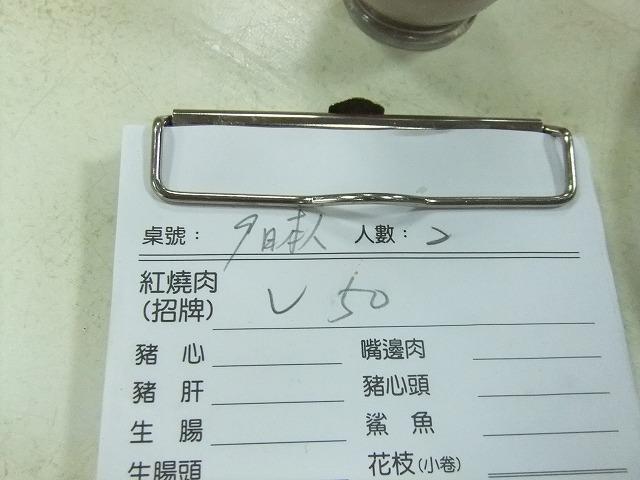 桌號： 9日本人 人數： 2
紅燒肉
(招牌) V 50
豬 心 嘴邊肉
豬 肝 豬心頭
生 腸 鯊 魚
生腸頭 花枝(小卷)